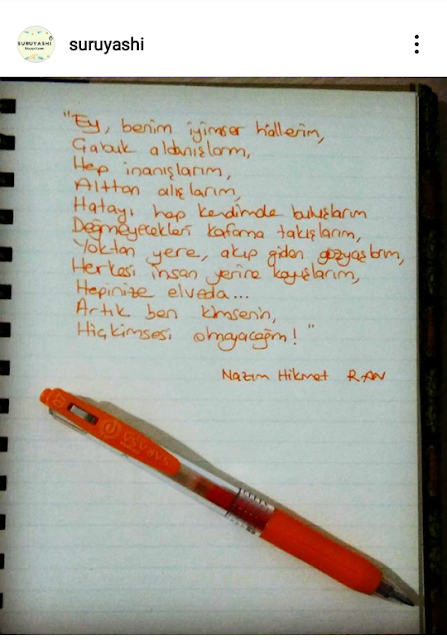 suruyashi
SURUYASHI
"Ey, benim iyimser hallerim,
Çabuk aldanışlarım,
Hep inanışlarım,
Alttan alışlarım,
Hatayı hep kendimde buluşlarım
Değmeyecekleri kafama takışlarım,
Yoktan yere, akıp giden gözyaşlarım,
Herkesi insan yerine koyuşlarım,
Hepinize elveda...
Artık ben kimsenin,
Hiçkimsesi olmayacağım! "
Nazım Hikmet RAN